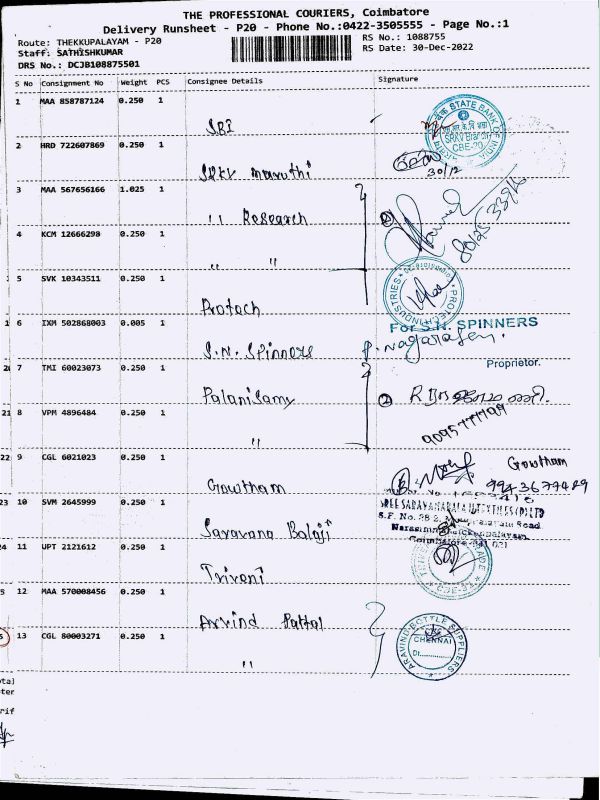 THE PROFESSIONAL COURIERS, Coimbatore
Delivery Runsheet - P20 - Phone No.:0422-3505555 - Page No.:1
Route: THEKKUPALAYAM - P20
Staff: SATHISHKUMAR
DRS No.: DCJB108875501
RS No.: 1088755
RS Date: 30-Dec-2022
S No Consignment No Weight PCS Consignee Details Signature
1 MAA 858787124 0.250 1
SBI
STATE BANK OF INDIA
SRKV Branch
CBE-20
2 HRD 722607869 0.250 1
SRKV Maruthi
30/12
3 MAA 567656166 1.025 1
" Research
4 KCM 12666298 0.250 1
" "
5 SVK 10343511 0.250 1
Protech
PROTECH INDUSTRIES
6 IXM 502868003 0.005 1
S.N. Spinners
For S.N. SPINNERS
P. Nagarajan.
Proprietor.
7 TMI 60023073 0.250 1
Palanisamy
8 VPM 4896484 0.250 1
"
9095777799
9 CGL 6021023 0.250 1
Gowtham
Gowtham
9943677489
10 SVM 2645999 0.250 1
Saravana Balaji
S.F. No.
Road
Coimbatore-641 021
11 UPT 2121612 0.250 1
Triveni
12 MAA 570008456 0.250 1
Arvind Pattal
13 CGL 80003271 0.250 1
"
ARAVIND BOTTLE SUPPLIERS
CHENNAI
Dt.